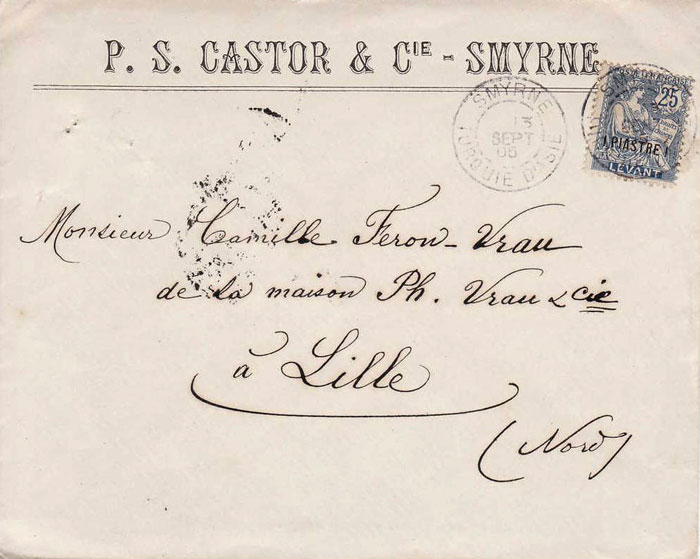 P. S. CASTOR & CIE - SMYRNE
25
1 PIASTRE 1
LEVANT
SMYRNE
13
SEPT
05
TURQUIE D'ASIE
Monsieur Camille Feron-Vrau
de la maison Ph. Vrau & cie
à Lille
(Nord)